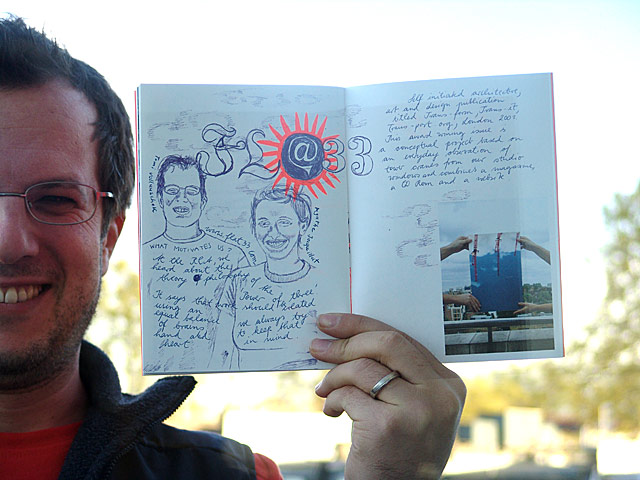 FL@33
www.flat33
WHAT MOTIVATES US?
At the RCA, we
heard about the
theory & philosophy
of the
'Power of three'
It says that work
uses an
equal balance
of brains
hand and
heart
should be treated
we always try
to keep that
in mind
Self initiated architecture,
art and design publication
titled Trans-form, Trans-it,
Trans-port.org, London 2001
This award winning issue is
a conceptual project based on
an everyday observation of
tower cranes from our studio
windows and combines a magazine,
a CD Rom and a website